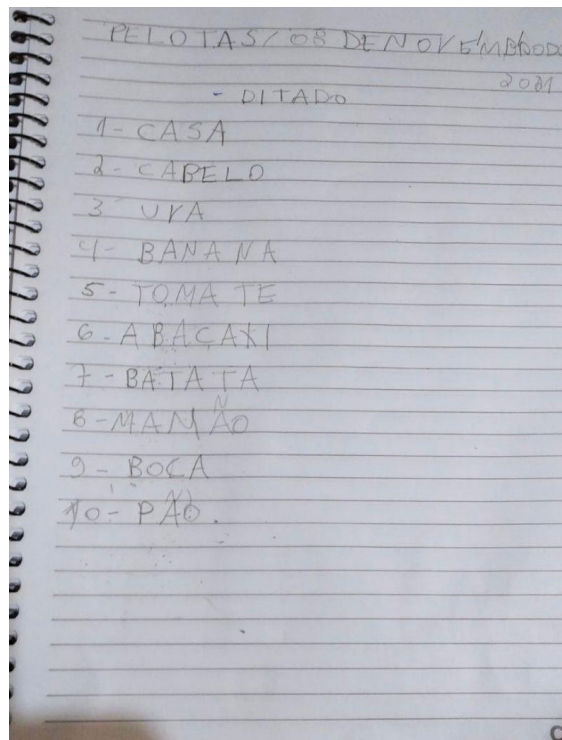 PELOTAS/08 DE NOVEMBRO DE
2021
- DITADO
1- CASA
2- CABELO
3 UVA
4- BANANA
5- TOMATE
6- ABACAXI
7- BATATA
8- MAMÃO
9- BOCA
10- PÃO.